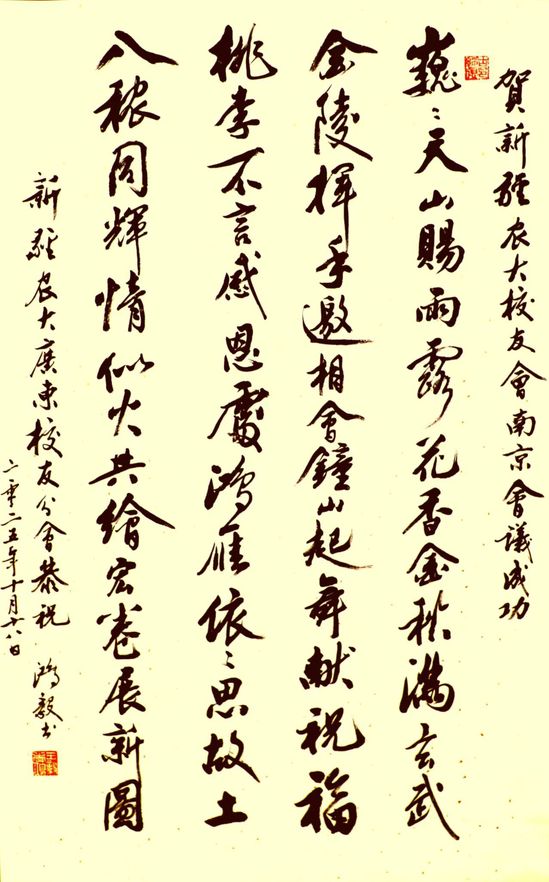 賀新疆农大校友會南京會議成功
巍〻天山賜雨露花香金秋滿玄武
金陵揮手邀相會鐘山起舞献祝福
桃李不言感恩處鴻雁依〻思故土
八秾同輝情似火共繪宏卷展新圖
新疆农大廣東校友分會恭祝 鴻毅书
二零二五年十月十八日